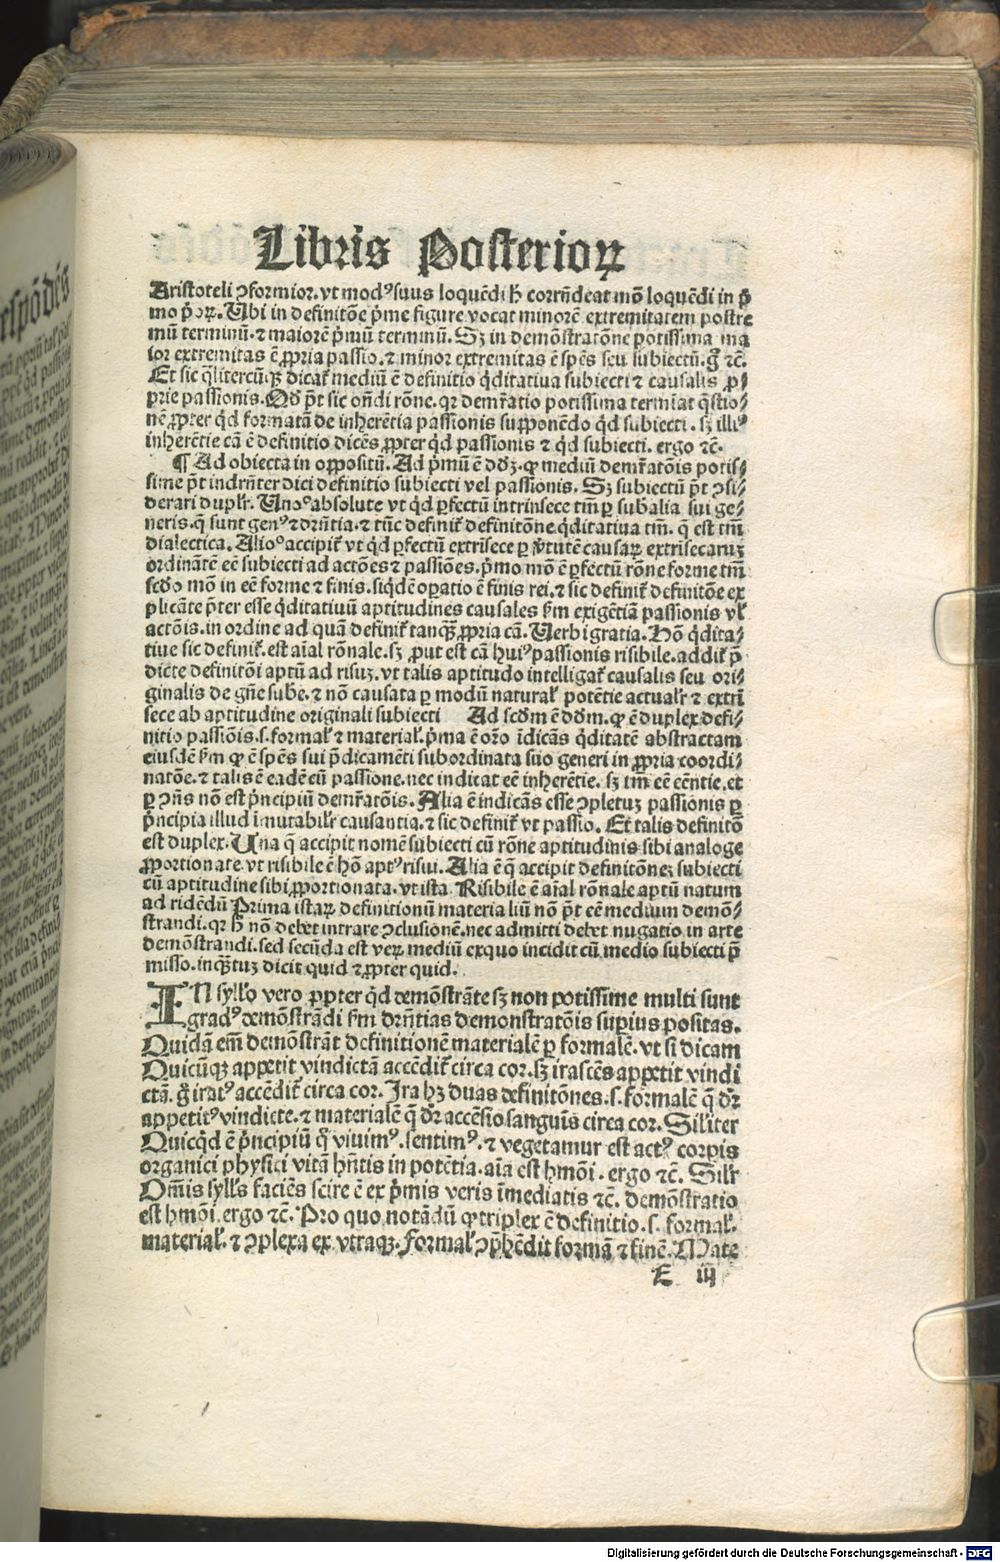 Libris Posterioꝝ
Aristoteli ꝯformior. vt modꝰ suus loquēdi ħ corrn̄deat mō loquēdi in p̄
mo p̄oꝝ. Ubi in definitōe p̄me figure vocat minorē extremitatem postre
mū terminū. ⁊ maiorē p̄mū terminū. Sꝫ in demōstratōne potissima ma
ior extremitas ē ꝓpria passio. ⁊ minor extremitas ē sp̄es seu subiectū. g̊ ⁊c̄.
Et sic q̄litercūqꝫ dicat᷑ mediū ē definitio q̇ditatiua subiecti ⁊ causalis ꝓ⸗
prie passionis. Qḋ p̄t sic on̄di rōne. qꝛ demr̄atio potissima termīat q̄stio⸗
nē ꝓpter q̇d formatā de inherētia passionis supponēdo q̇d subiecti. sꝫ illiꝰ
inherētie cā ē definitio dicēs ꝓpter q̇d passionis ⁊ q̇d subiecti. ergo ⁊c̄.
¶ Ad obiecta in oppositū. Ad p̄mū ē dōꝫ. ꝙ mediū demr̄atōis potis⸗
sime p̄t indrn̄ter dici definitio subiecti vel passionis. Sꝫ subiectū p̄t ꝯsi⸗
derari duplr̄. Unoº absolute vt q̇d ꝑfectū intrinsece tm̄ ꝑ subalia sui ge⸗
neris. q̄ sunt genꝰ ⁊ drn̄tia. ⁊ tūc definit᷑ definitōne q̇ditatiua tm̄. q̄ est tm̄
dialectica. Alioº accipit᷑ vt q̇d ꝑfectū extrīsece ꝑ v̄tutē causaꝝ extrīsecaruꝫ
ordinatē eē subiecti ad actōes ⁊ passiōes. p̄mo mō ē ꝑfectū rōne forme tm̄
scḋo mō in eē forme ⁊ finis. siq̇dē oꝑatio ē finis rei. ⁊ sic definit᷑ definitōe ex
plicāte p̄ter esse q̇ditatiuū aptitudines causales ẜm exigētiā passionis vl᷑
actōis. in ordine ad quā definit᷑ tanqꝫ̄ ꝓpria cā. Uerbi gratia. Hō q̇dita⸗
tiue sic definit᷑. est aīal rōnale. sꝫ ꝓut est cā huiꝰ passionis risibile. addit᷑ p̄
dicte definitōi aptū ad risuꝫ. vt talis aptitudo intelligat᷑ causalis seu ori⸗
ginalis de gn̄e sube. ⁊ nō causata ꝑ modū natural᷑ potētie actual᷑r ⁊ extrī
sece ab aptitudine originali subiecti Ad scḋm ē dḋm. ꝙ ē duplex defi⸗
nitio passiōis. s. formal᷑ ⁊ material᷑. p̄ma ē or̄o īdicās q̇ditatē abstractam
eiusdē ẜm ꝙ ē sp̄es sui p̄dicamēti subordinata suo generi in ꝓpria coordi⸗
natōe. ⁊ talis ē eadē cū passione. nec indicat eē inherētie. sꝫ tm̄ eē eēntie. et
ꝑ ꝯn̄s nō est p̄ncipiū demr̄atōis. Alia ē indicās esse ꝯpletuꝫ passionis ꝑ
p̄ncipia illud īmutabilr̄ causantia. ⁊ sic definit᷑ vt passio. Et talis definitō
est duplex. Una q̄ accipit nomē subiecti cū rōne aptitudinis sibi analoge
ꝓportionate. vt risibile ē hō aptꝰ risui. Alia ē q̄ accipit definitōneꝫ subiecti
cū aptitudine sibi ꝓportionata. vt ista. Risibile ē aīal rōnale aptū natum
ad ridēdū Prima istaꝝ definitionū materialiū nō p̄t eē medium demō⸗
strandi. qꝛ ħ nō debet intrare ꝯclusionē. nec admitti debet nugatio in arte
demōstrandi. sed secūda est veꝝ mediū ex quo incidit cū medio subiecti p̄
misso. inqꝫ̄tuꝫ dicit quid ⁊ ꝓpter quid.
IN syllo vero ꝓpter q̇d demōstrāte sꝫ non potissime multi sunt
gradꝰ demōstrādi ẜm drn̄tias demonstratōis suꝑius positas.
Quidā em̄ demōstrāt definitionē materialē ꝑ formalē. vt si dicam
Quicūqꝫ appetit vindictā accēdit᷑ circa cor. sꝫ irascēs appetit vindi
ctā. g̊ iratꝰ accēdit᷑ circa cor. Ira hꝫ duas definitōnes. s. formalē q̄ dr̄
appetitꝰ vindicte. ⁊ materialē q̄ dr̄ accēsio sanguīs circa cor. Sil̄iter
Quicq̇d ē p̄ncipiū q̊ viuimꝰ. sentimꝰ. ⁊ vegetamur est actꝰ corꝑis
organici physici vitā hn̄tis in potētia. aīa est hmōi. ergo ⁊c̄. Silr̄
Om̄is sylls̄ faciēs scire ē ex p̄mis veris īmediatis ⁊c̄. demōstratio
est hmōi. ergo ⁊c̄. Pro quo notādū ꝙ triplex ē definitio. s. formal᷑.
material᷑. ⁊ ꝯplexa ex vtraqꝫ. Formal᷑ ꝯp̄hēdit formā ⁊ finē. Mate
E iij
Digitalisierung gefördert durch die Deutsche Forschungsgemeinschaft - DFG